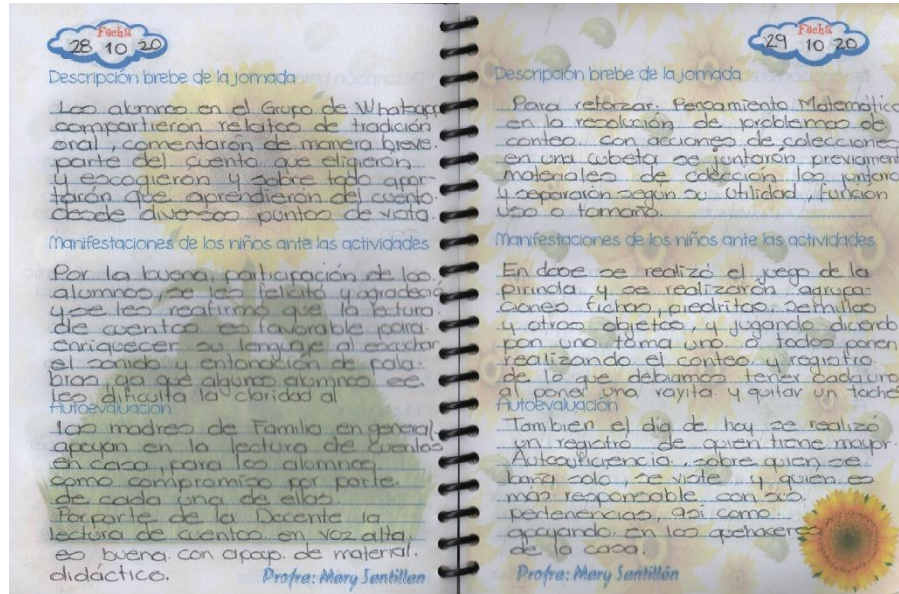 Fecha
28 10 20
Descripción brebe de la jornada
Los alumnos en el Grupo de Whatsapp
compartierón relatos de tradición
oral, comentarón de manera breve.
parte del cuento que eligierón
y escogierón y sobre todo apor-
tarón que aprendierón del cuento.
desde diversos puntos de vista.
Manifestaciones de los niños ante las actividades
Por la buena participación de los
alumnos se les felicito y agradeció
y se les reafirmo que la lectura
de cuentos es favorable para
enriquecer su lenguaje al escuchar
el sonido y entonación de pala-
bras ya que algunos alumnos se
les dificulta la claridad al
Autoevaluación
las madres de Familia en general.
apoyan en la lectura de cuentos
en casa, para los alumnos
como compromiso por parte
de cada una de ellas.
Por parte de la Docente la
lectura de cuentos en voz alta
es buena con apoyo de material.
didáctico.
Profra: Mary Santillán
Fecha
29 10 20
Descripción brebe de la jornada
Para reforzar Pensamiento Matemático
en la resolución de problemas de
conteo con acciones de colecciones
en una cubeta se juntarón previament
materiales de colección los juntaro
y separarón según su utilidad, función
uso o tamaño.
Manifestaciones de los niños ante las actividades
En dose se realizó el juego de la
pirinola y se realizarón agrupa-
ciones fichas, piedritas semillas
y otros objetos, y jugando diciendo
pon uno toma uno o todos ponen
realizando el conteo y registro.
de lo que debíamos tener cada uno
al poner una rayita y quitar un tache
Autoevaluación
Tambien el dia de hay se realizó
un registro de quien tiene mayor.
Autosuficiencia sobre quien se
baña solo, se viste y quien es
más responsable con sus
pertenencias así como
apoyando en los quehaceres
de la casa.
Profra: Mary Santillán